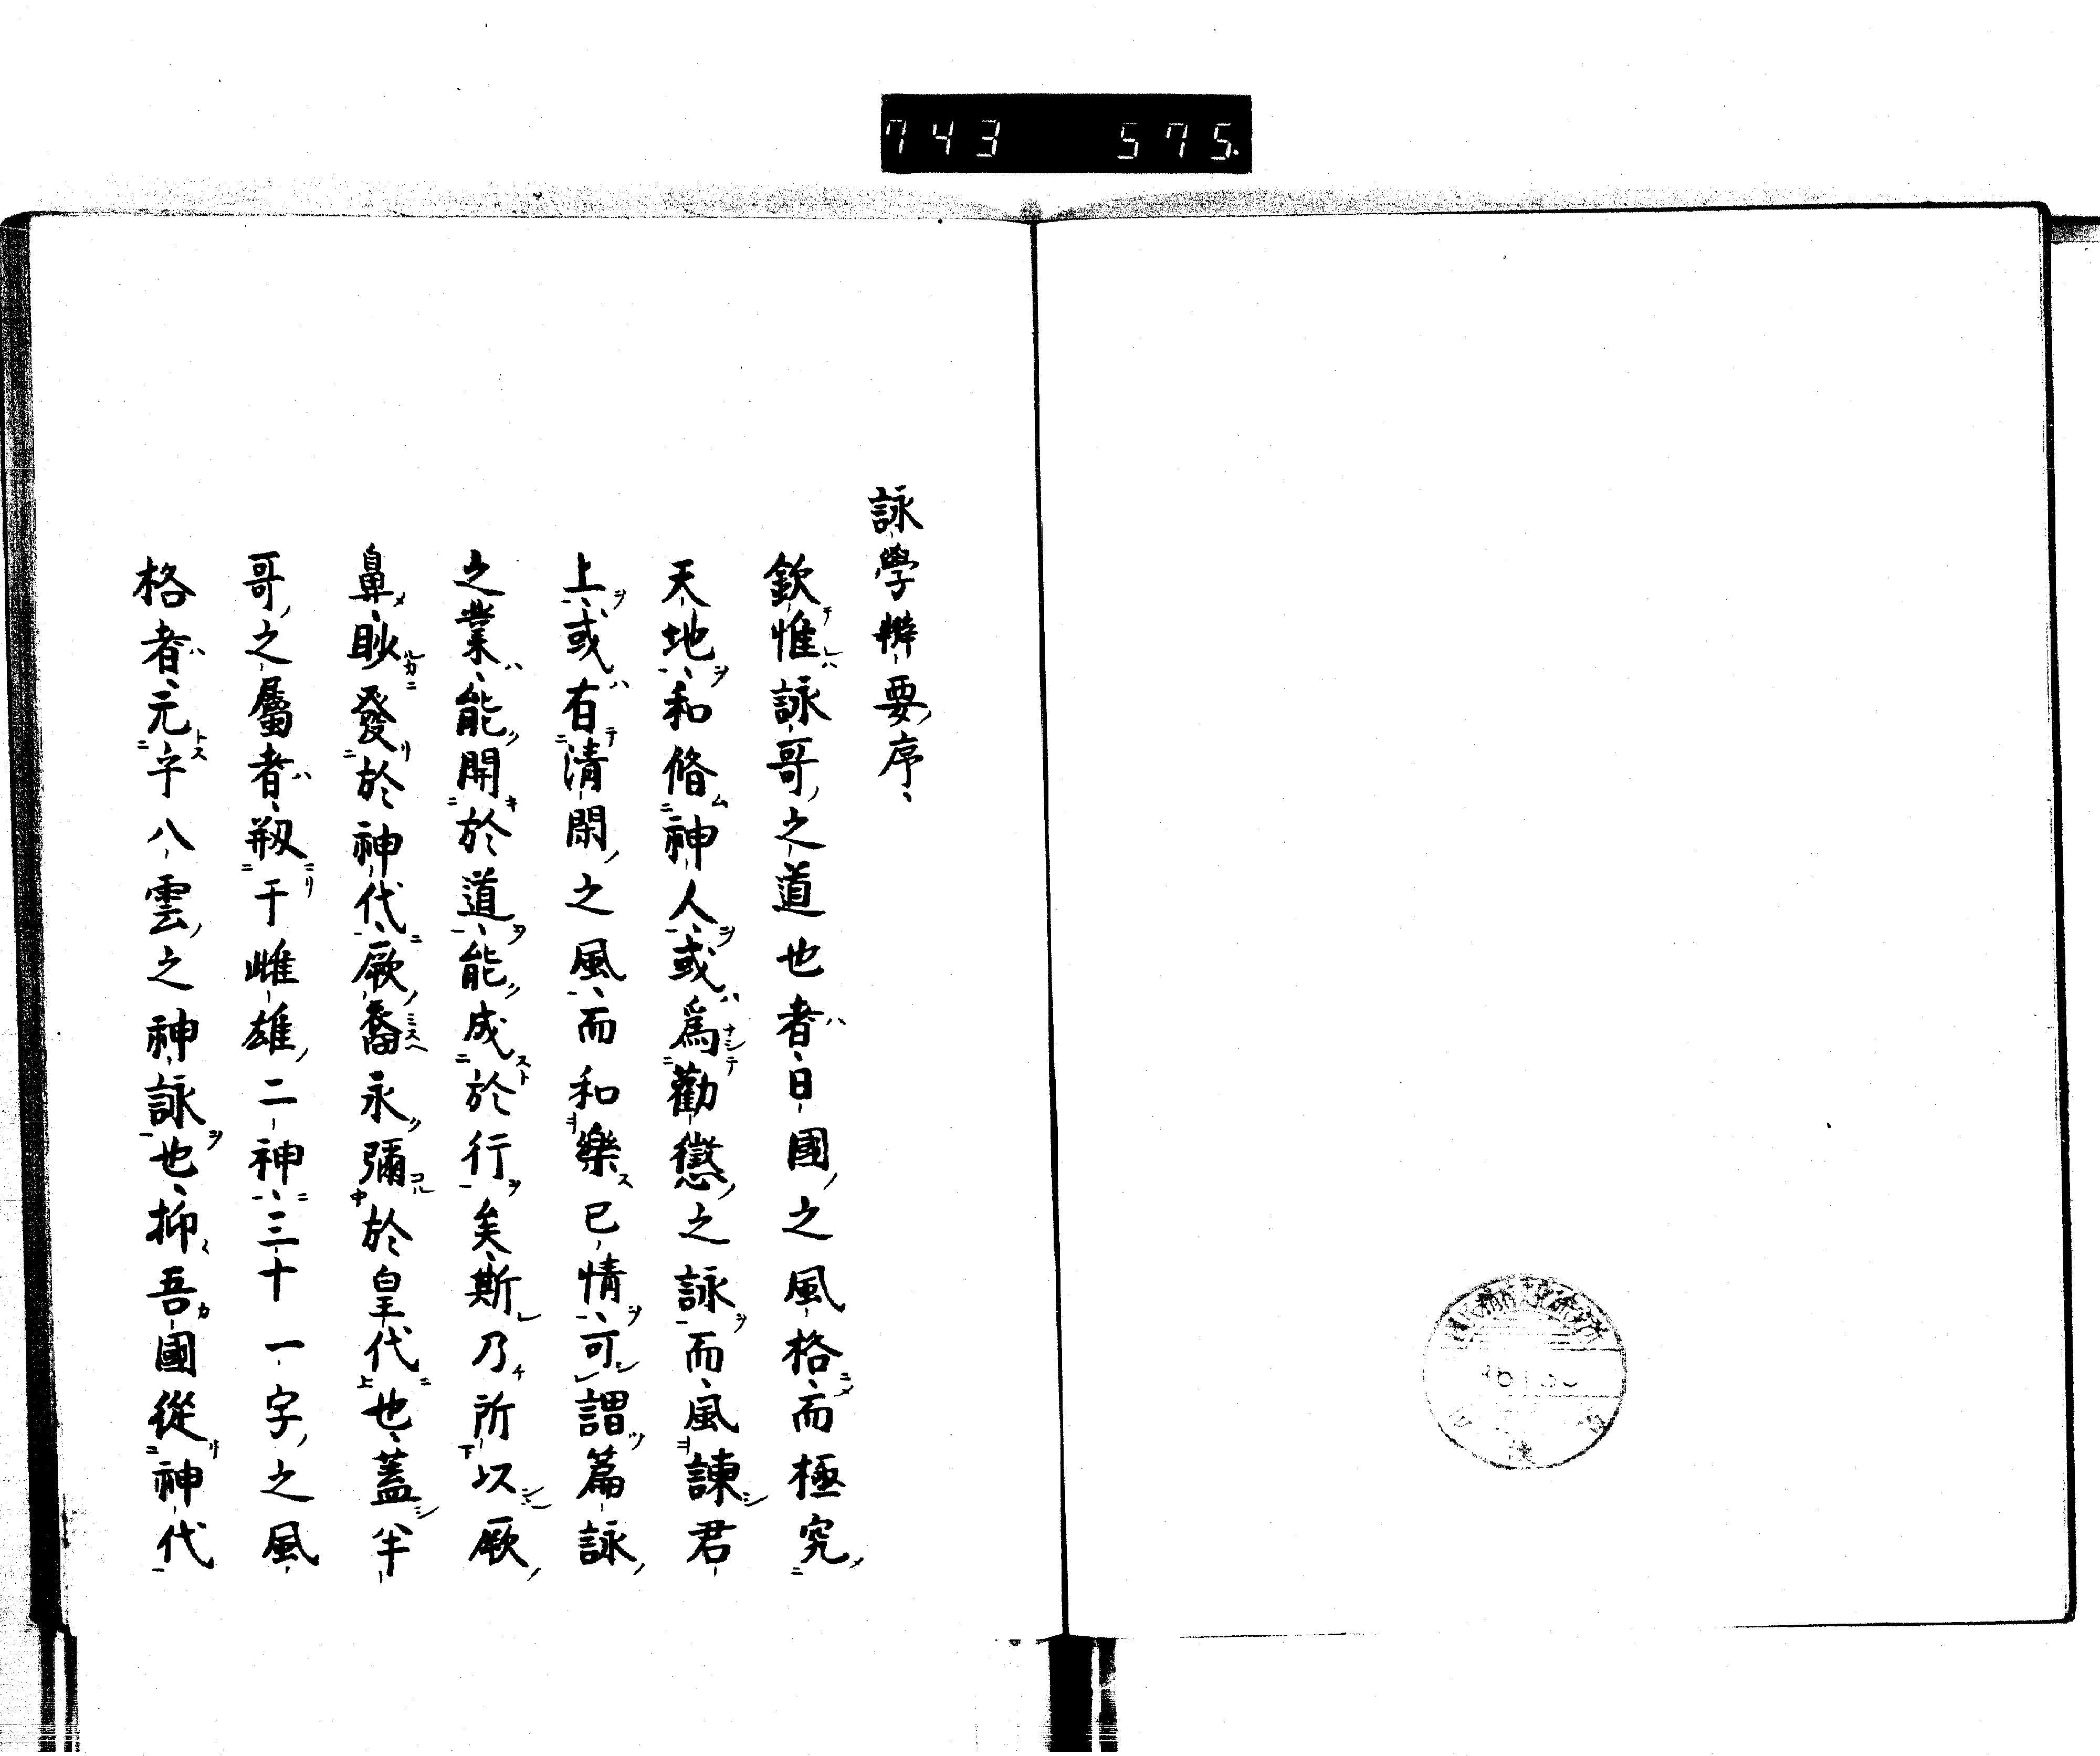 743 575.
詠學辨要序、
欽惟詠哥之道也者、日國之風格、而極究
天地、和脩神人、或爲勸懲之詠而、風諫君
上、或有清閑之風、而和樂已情、可謂篇詠
之業、能開於道、能成於行矣、斯乃所以厥
鼻、眇發於神代、厥裔永彌於皇代也、蓋半
哥之屬者、剏于雌雄二神、三十一字之風
格者、元乎八雲之神詠也、抑吾國從神代